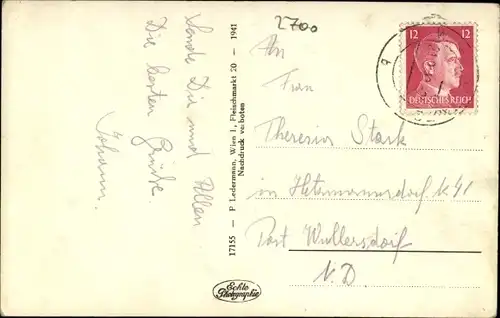 2700
Sende Dir und Allen
Die besten Grüße.
Johann.
17155 — P. Ledermann, Wien I, Fleischmarkt 20 — 1941
Nachdruck verboten
Echte
Photographie
An
Frau
Theresia Stark
in Hetzmannsdorf № 41
Post Wullersdorf
N.D.
12 12
DEUTSCHES REICH